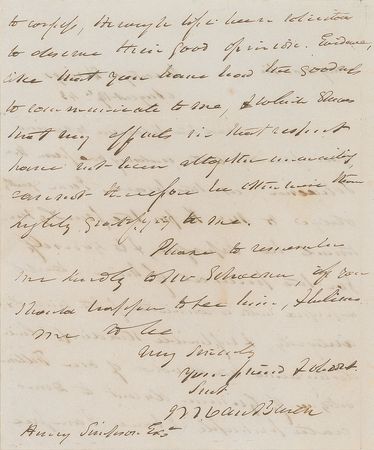 to confess, through life been solicitous
to deserve their good opinion. Evidence,
like that you have had the goodness
to communicate to me, & which shows
that my efforts in that respect
have not been altogether unavailing,
can not therefore be otherwise than
highly gratifying to me.
Please to remember
me kindly to Mr, if you
should happen to see him, & believe
me to be
Very Sincerely
Your friend & obedt
Servt
M Van Buren
Henry Simpson Esqr